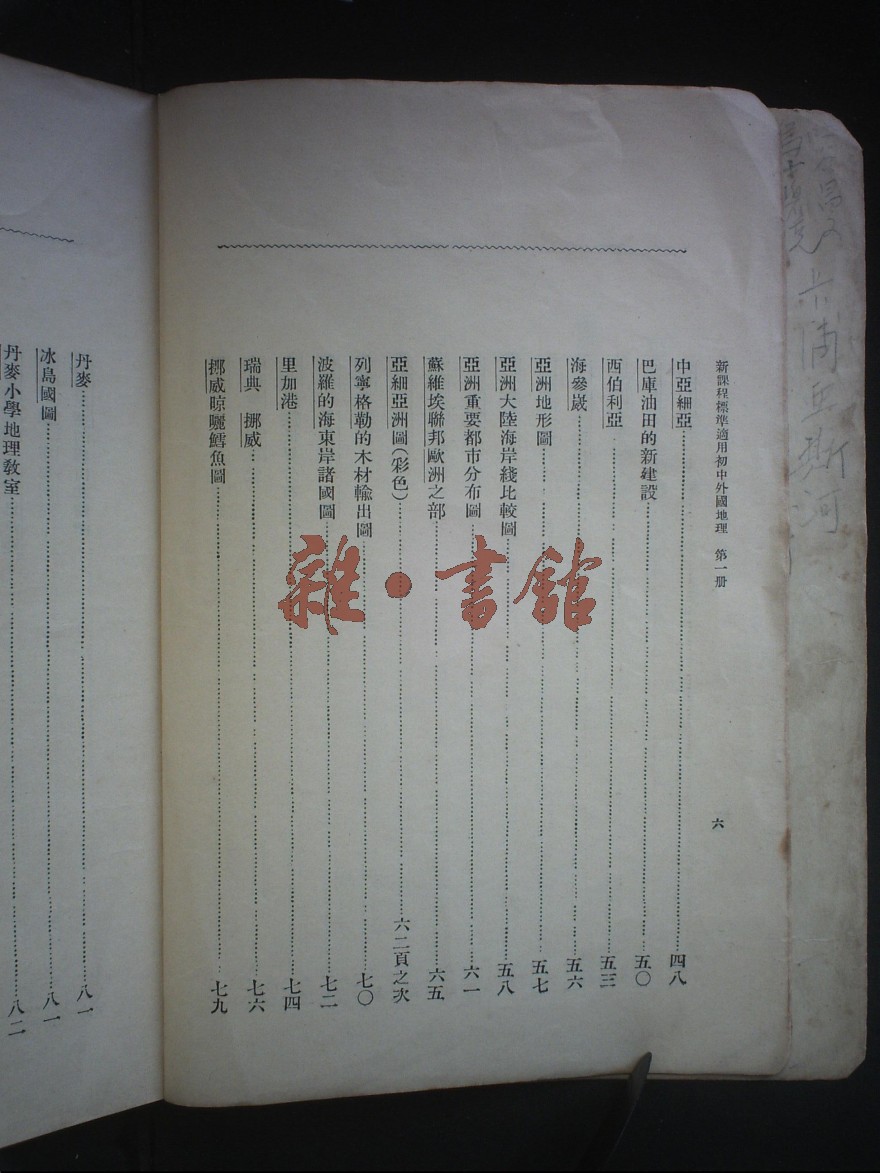 新課程標準適用初中外國地理　第一册
六
中亞細亞……四八
巴庫油田的新建設……五〇
西伯利亞……五三
海參崴……五六
亞洲地形圖……五七
亞洲大陸海岸綫比較圖……五八
亞洲重要都市分布圖……六一
蘇維埃聯邦歐洲之部……六五
亞細亞洲圖(彩色)……六二頁之次
列寧格勒的木材輸出圖……七〇
波羅的海東岸諸國圖……七二
里加港……七四
瑞典　挪威……七六
挪威晾曬鱈魚圖……七九
丹麥……八一
冰島國圖……八一
丹麥小學地理教室……八二
雜·書館